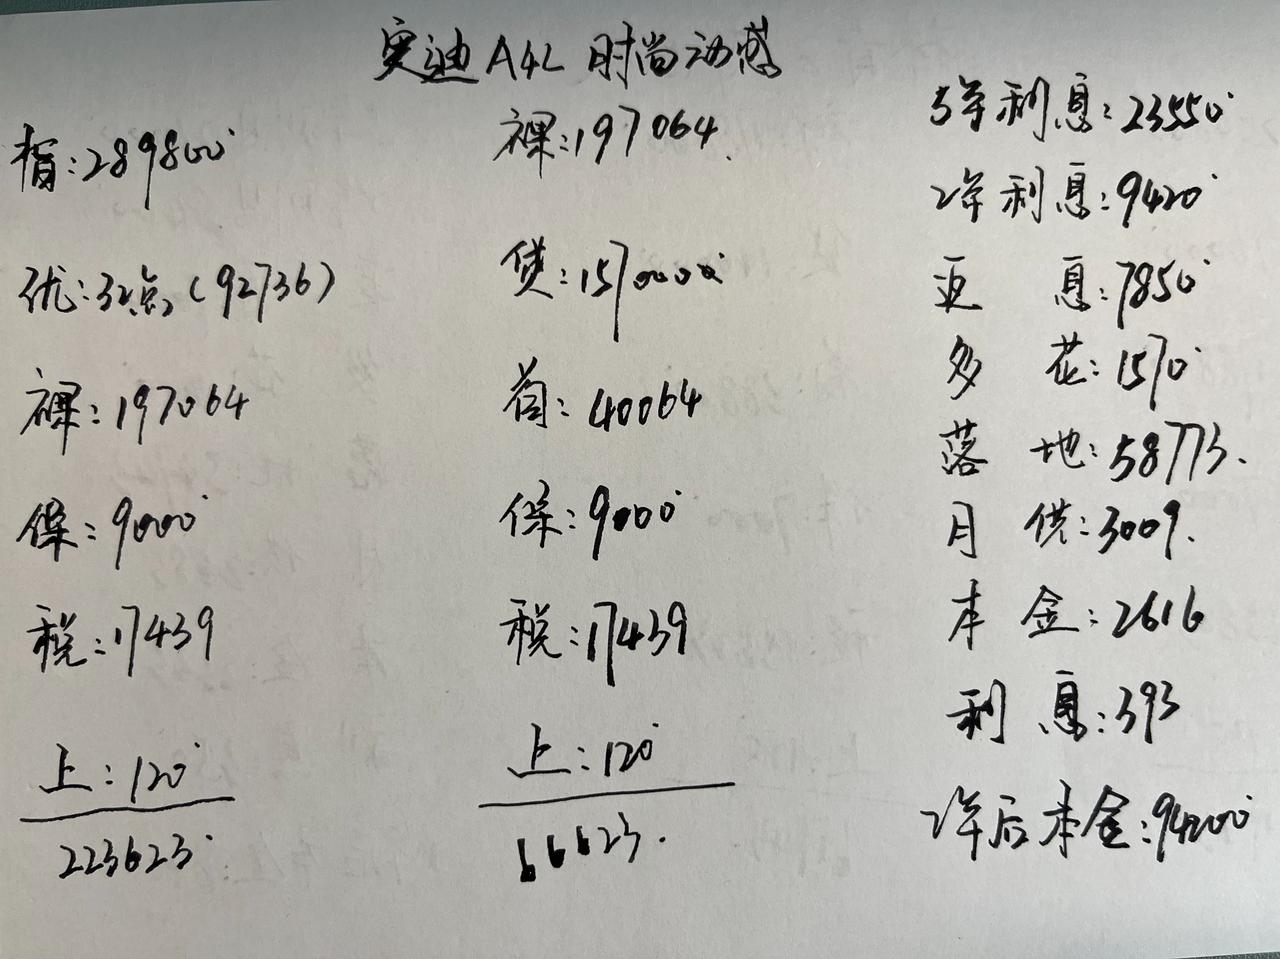 奥迪A4L 时尚动感
指:289800
优:32点(92736)
裸:197064
保:9000
税:17439
上:120
223623
裸:197064
贷:157000
首:40064
保:9000
税:17439
上:120
66623
5年利息:23550
2年利息:9420
返息:7850
多花:1570
落地:58773
月供:3009
本金:2616
利息:393
2年后本金:94200